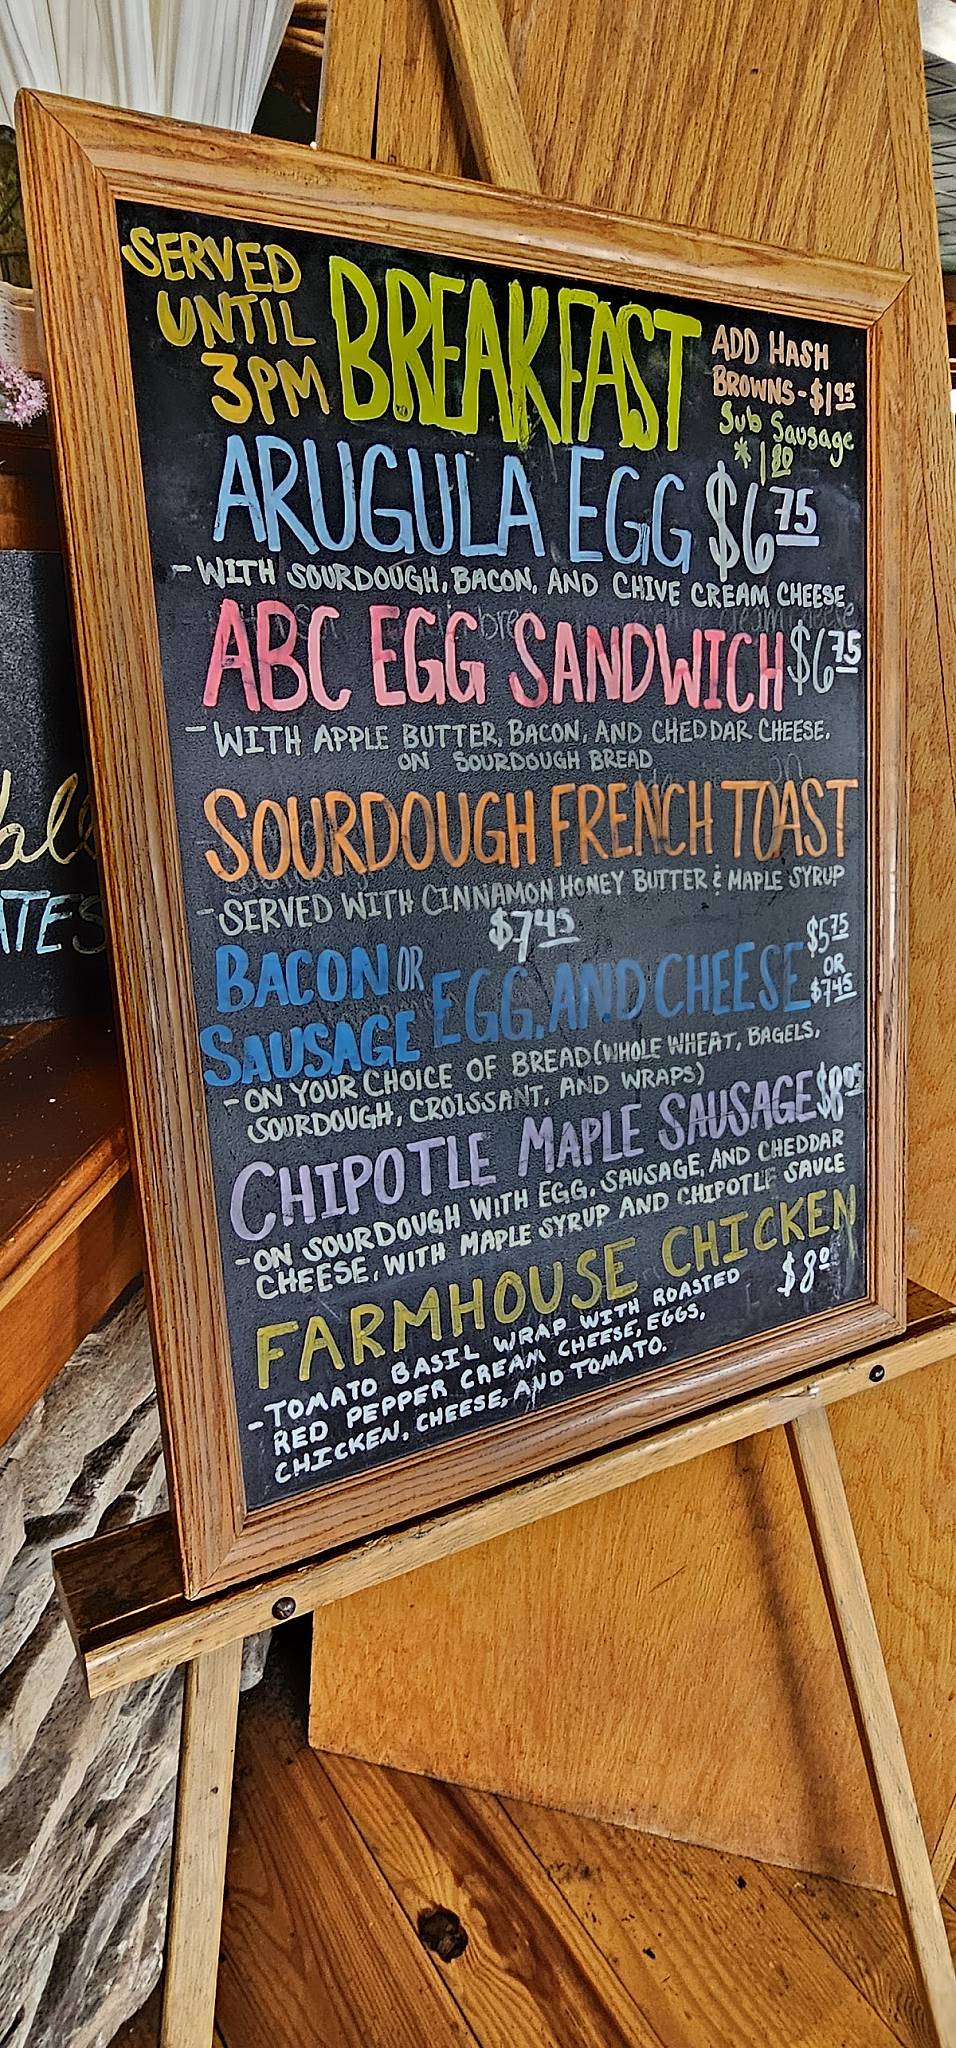 SERVED
UNTIL
3PM
BREAKFAST
ADD HASH
BROWNS-$1.95
Sub Sausage
* 1.80
ARUGULA EGG $6.75
-WITH SOURDOUGH, BACON, AND CHIVE CREAM CHEESE
ABC EGG SANDWICH $6.75
-WITH APPLE BUTTER, BACON, AND CHEDDAR CHEESE.
ON SOURDOUGH BREAD
SOURDOUGH FRENCH TOAST
-SERVED WITH CINNAMON HONEY BUTTER & MAPLE SYRUP
$7.45
BACON OR
SAUSAGE EGG, AND CHEESE $5.75
OR
$7.45
-ON YOUR CHOICE OF BREAD (WHOLE WHEAT, BAGELS,
SOURDOUGH, CROISSANT, AND WRAPS)
CHIPOTLE MAPLE SAUSAGE $8.05
-ON SOURDOUGH WITH EGG, SAUSAGE, AND CHEDDAR
CHEESE, WITH MAPLE SYRUP AND CHIPOTLE SAUCE
FARMHOUSE CHICKEN
-TOMATO BASIL WRAP WITH ROASTED
RED PEPPER CREAM CHEESE, EGGS,
CHICKEN, CHEESE, AND TOMATO.
ATES